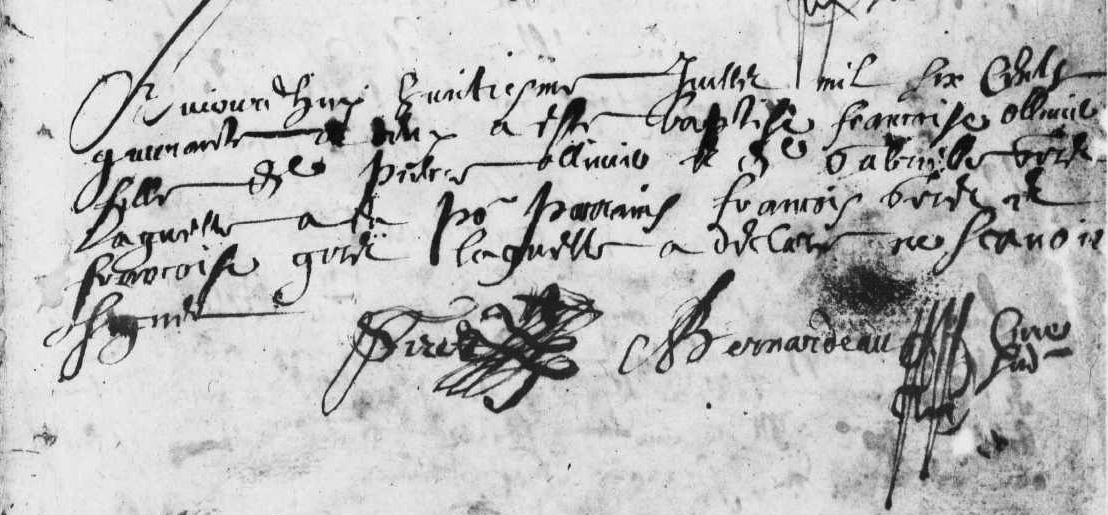 Aujourdhuy huictiesme Juillet mil six Cents
quarante et deux a este baptise francoise ollivie
fille de pierre ollivie et de Gabrielle
Laquelle a eu po parains francois et
francoise laquelle a declaré ne scavoir
signer
Bernardeau Cure